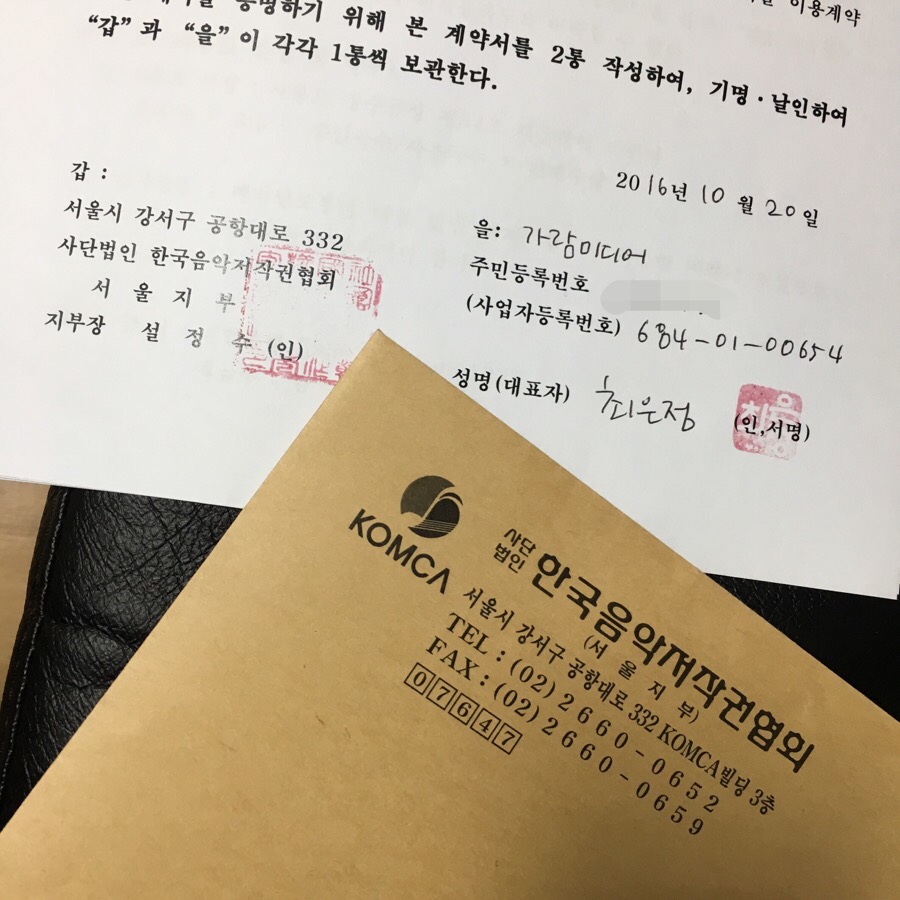 이용계약
증명하기 위해 본 계약서를 2통 작성하여, 기명·날인하여
“갑”과 “을”이 각각 1통씩 보관한다.
2016년 10월 20일
갑 :
서울시 강서구 공항대로 332
사단법인 한국음악저작권협회
서 울 지 부
지부장 설 정 수 (인)
을: 가람미디어
주민등록번호
(사업자등록번호) 684-01-00654
성명(대표자) 최은정 (인,서명)
KOMCA
사단법인 한국음악저작권협회
(서 울 지 부)
서울시 강서구 공항대로 332 KOMCA빌딩 3층
TEL : (02) 2660-0652
FAX : (02) 2660-0659
07647